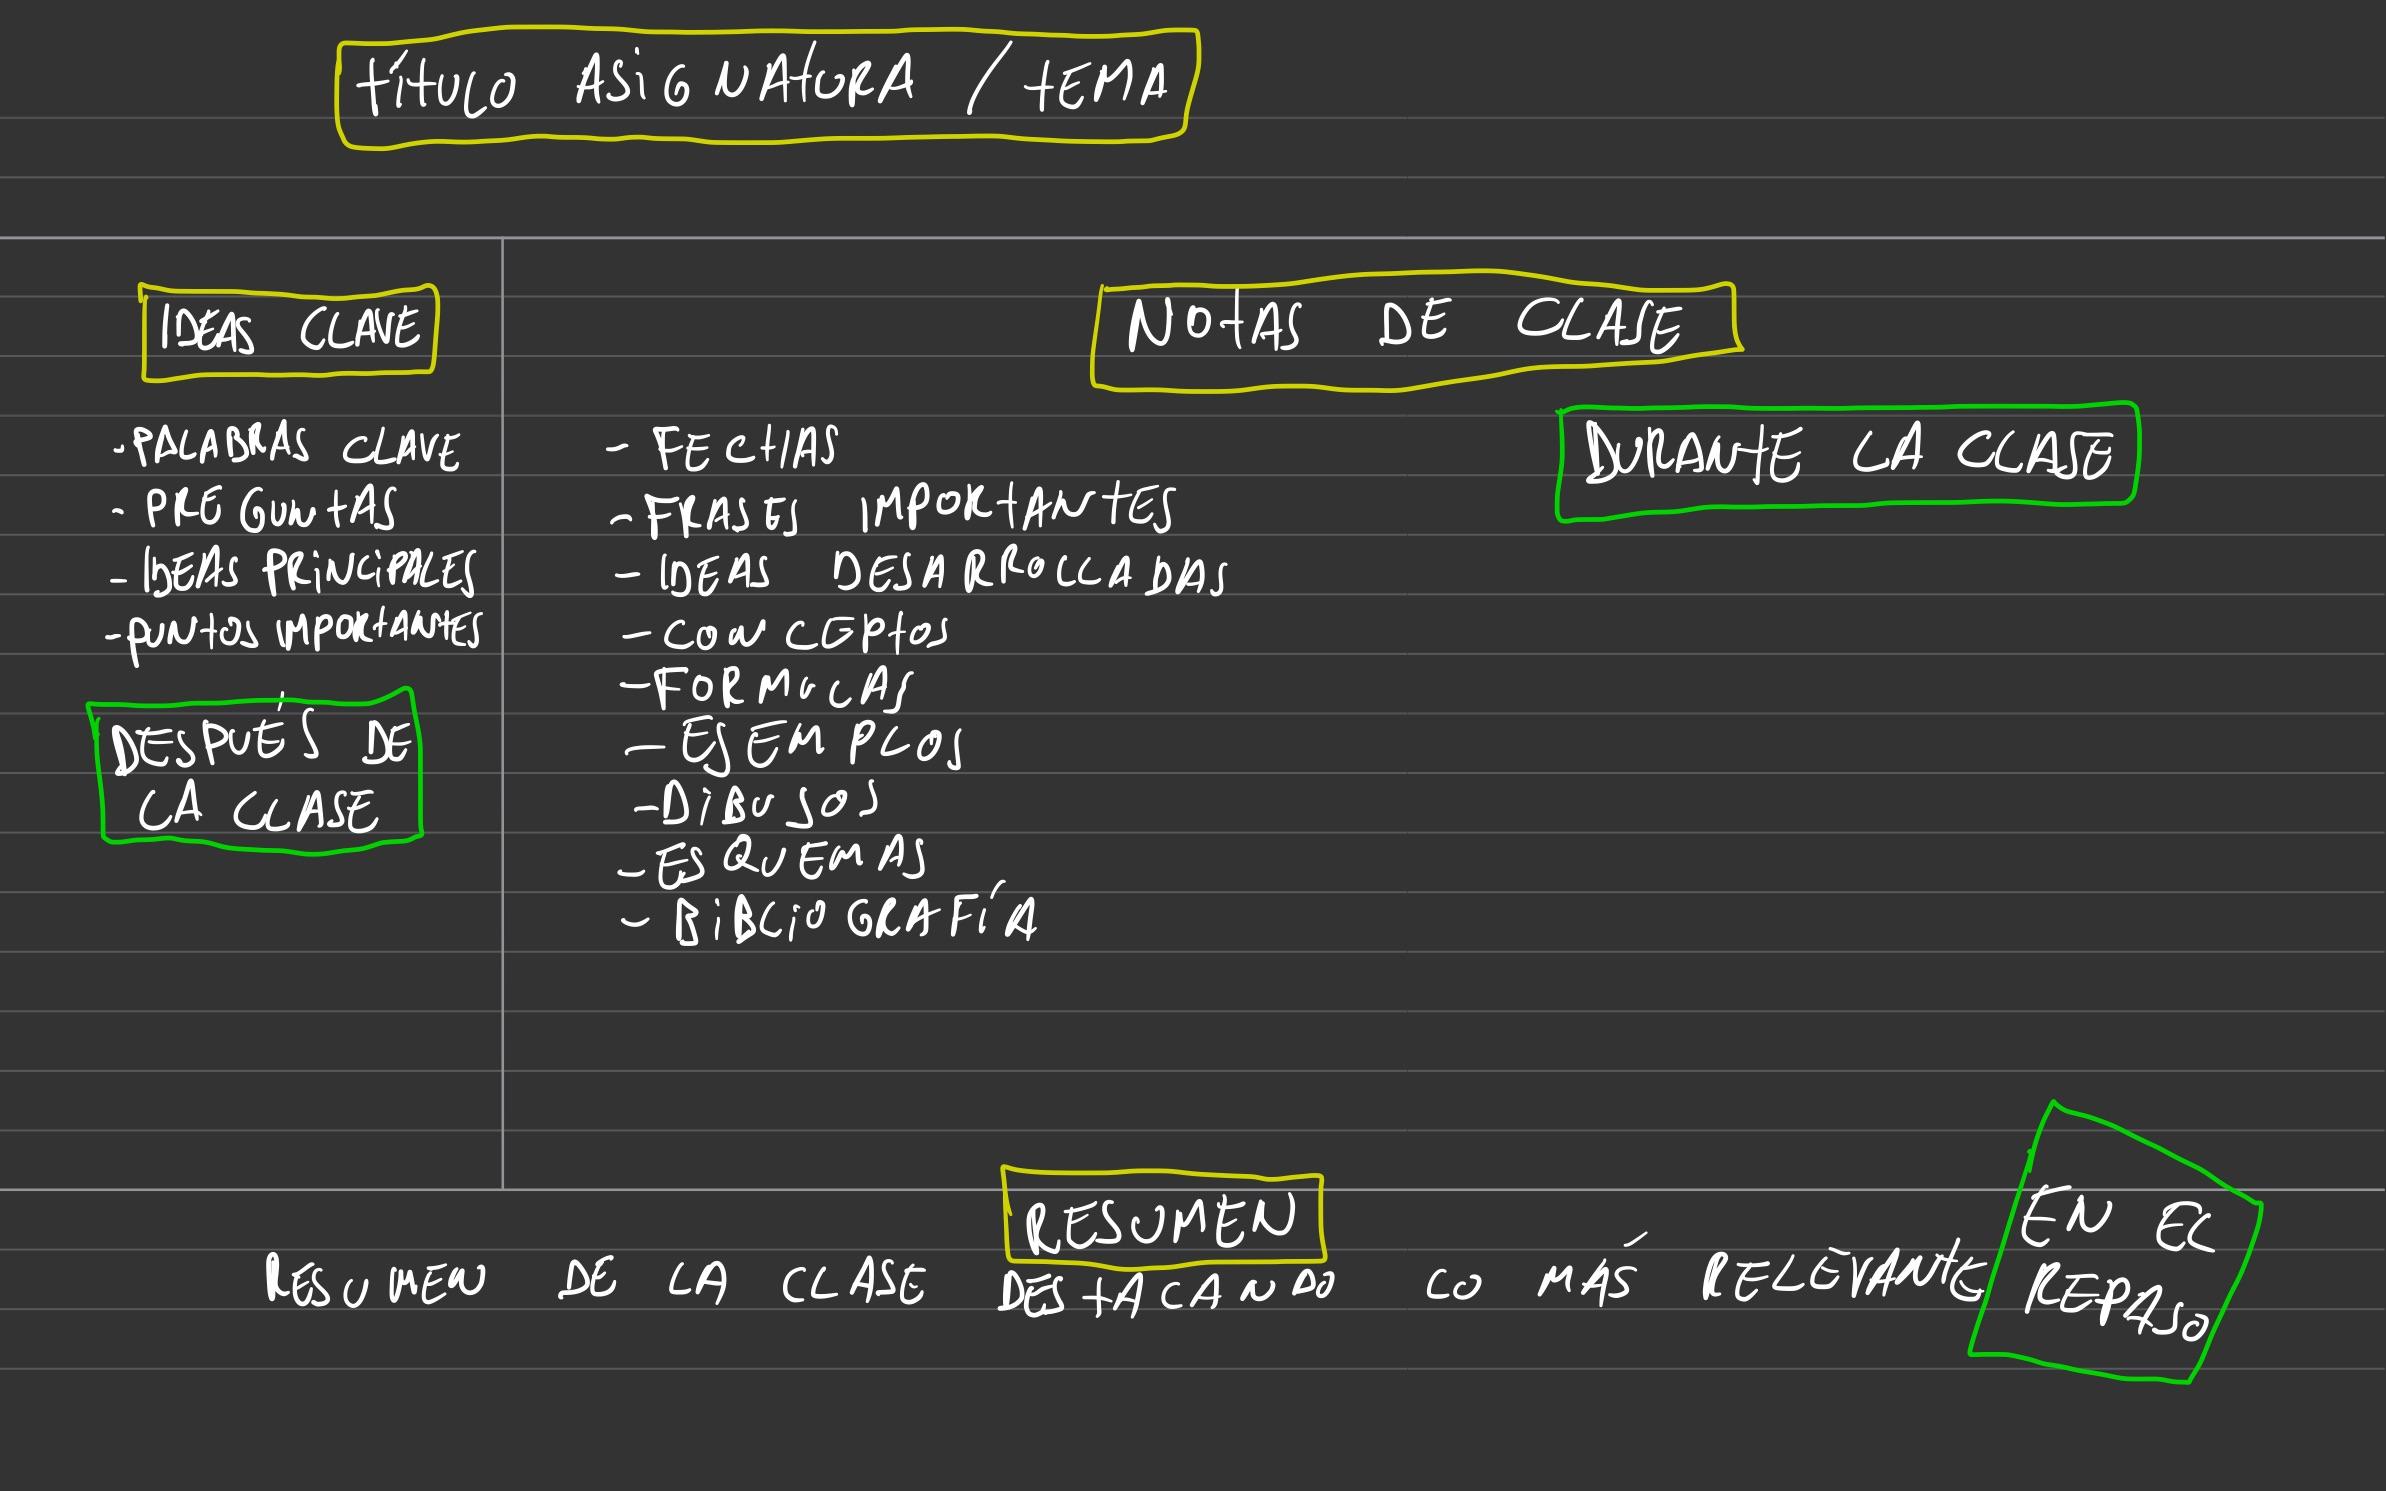 TÍTULO ASIGNATURA / TEMA
IDEAS CLAVE
- PALABRAS CLAVE
- PREGUNTAS
- IDEAS PRINCIPALES
- PUNTOS IMPORTANTES
DESPUÉS DE
LA CLASE
NOTAS DE CLASE
DURANTE LA CLASE
- FECHAS
- FRASES IMPORTANTES
- IDEAS DESARROLLADAS
- CONCEPTOS
- FORMULAS
- EJEMPLOS
- DIBUJOS
- ESQUEMAS
- BIBLIOGRAFÍA
RESUMEN
RESUMEN DE LA CLASE DESTACANDO LO MÁS RELEVANTE
EN EL
REPASO